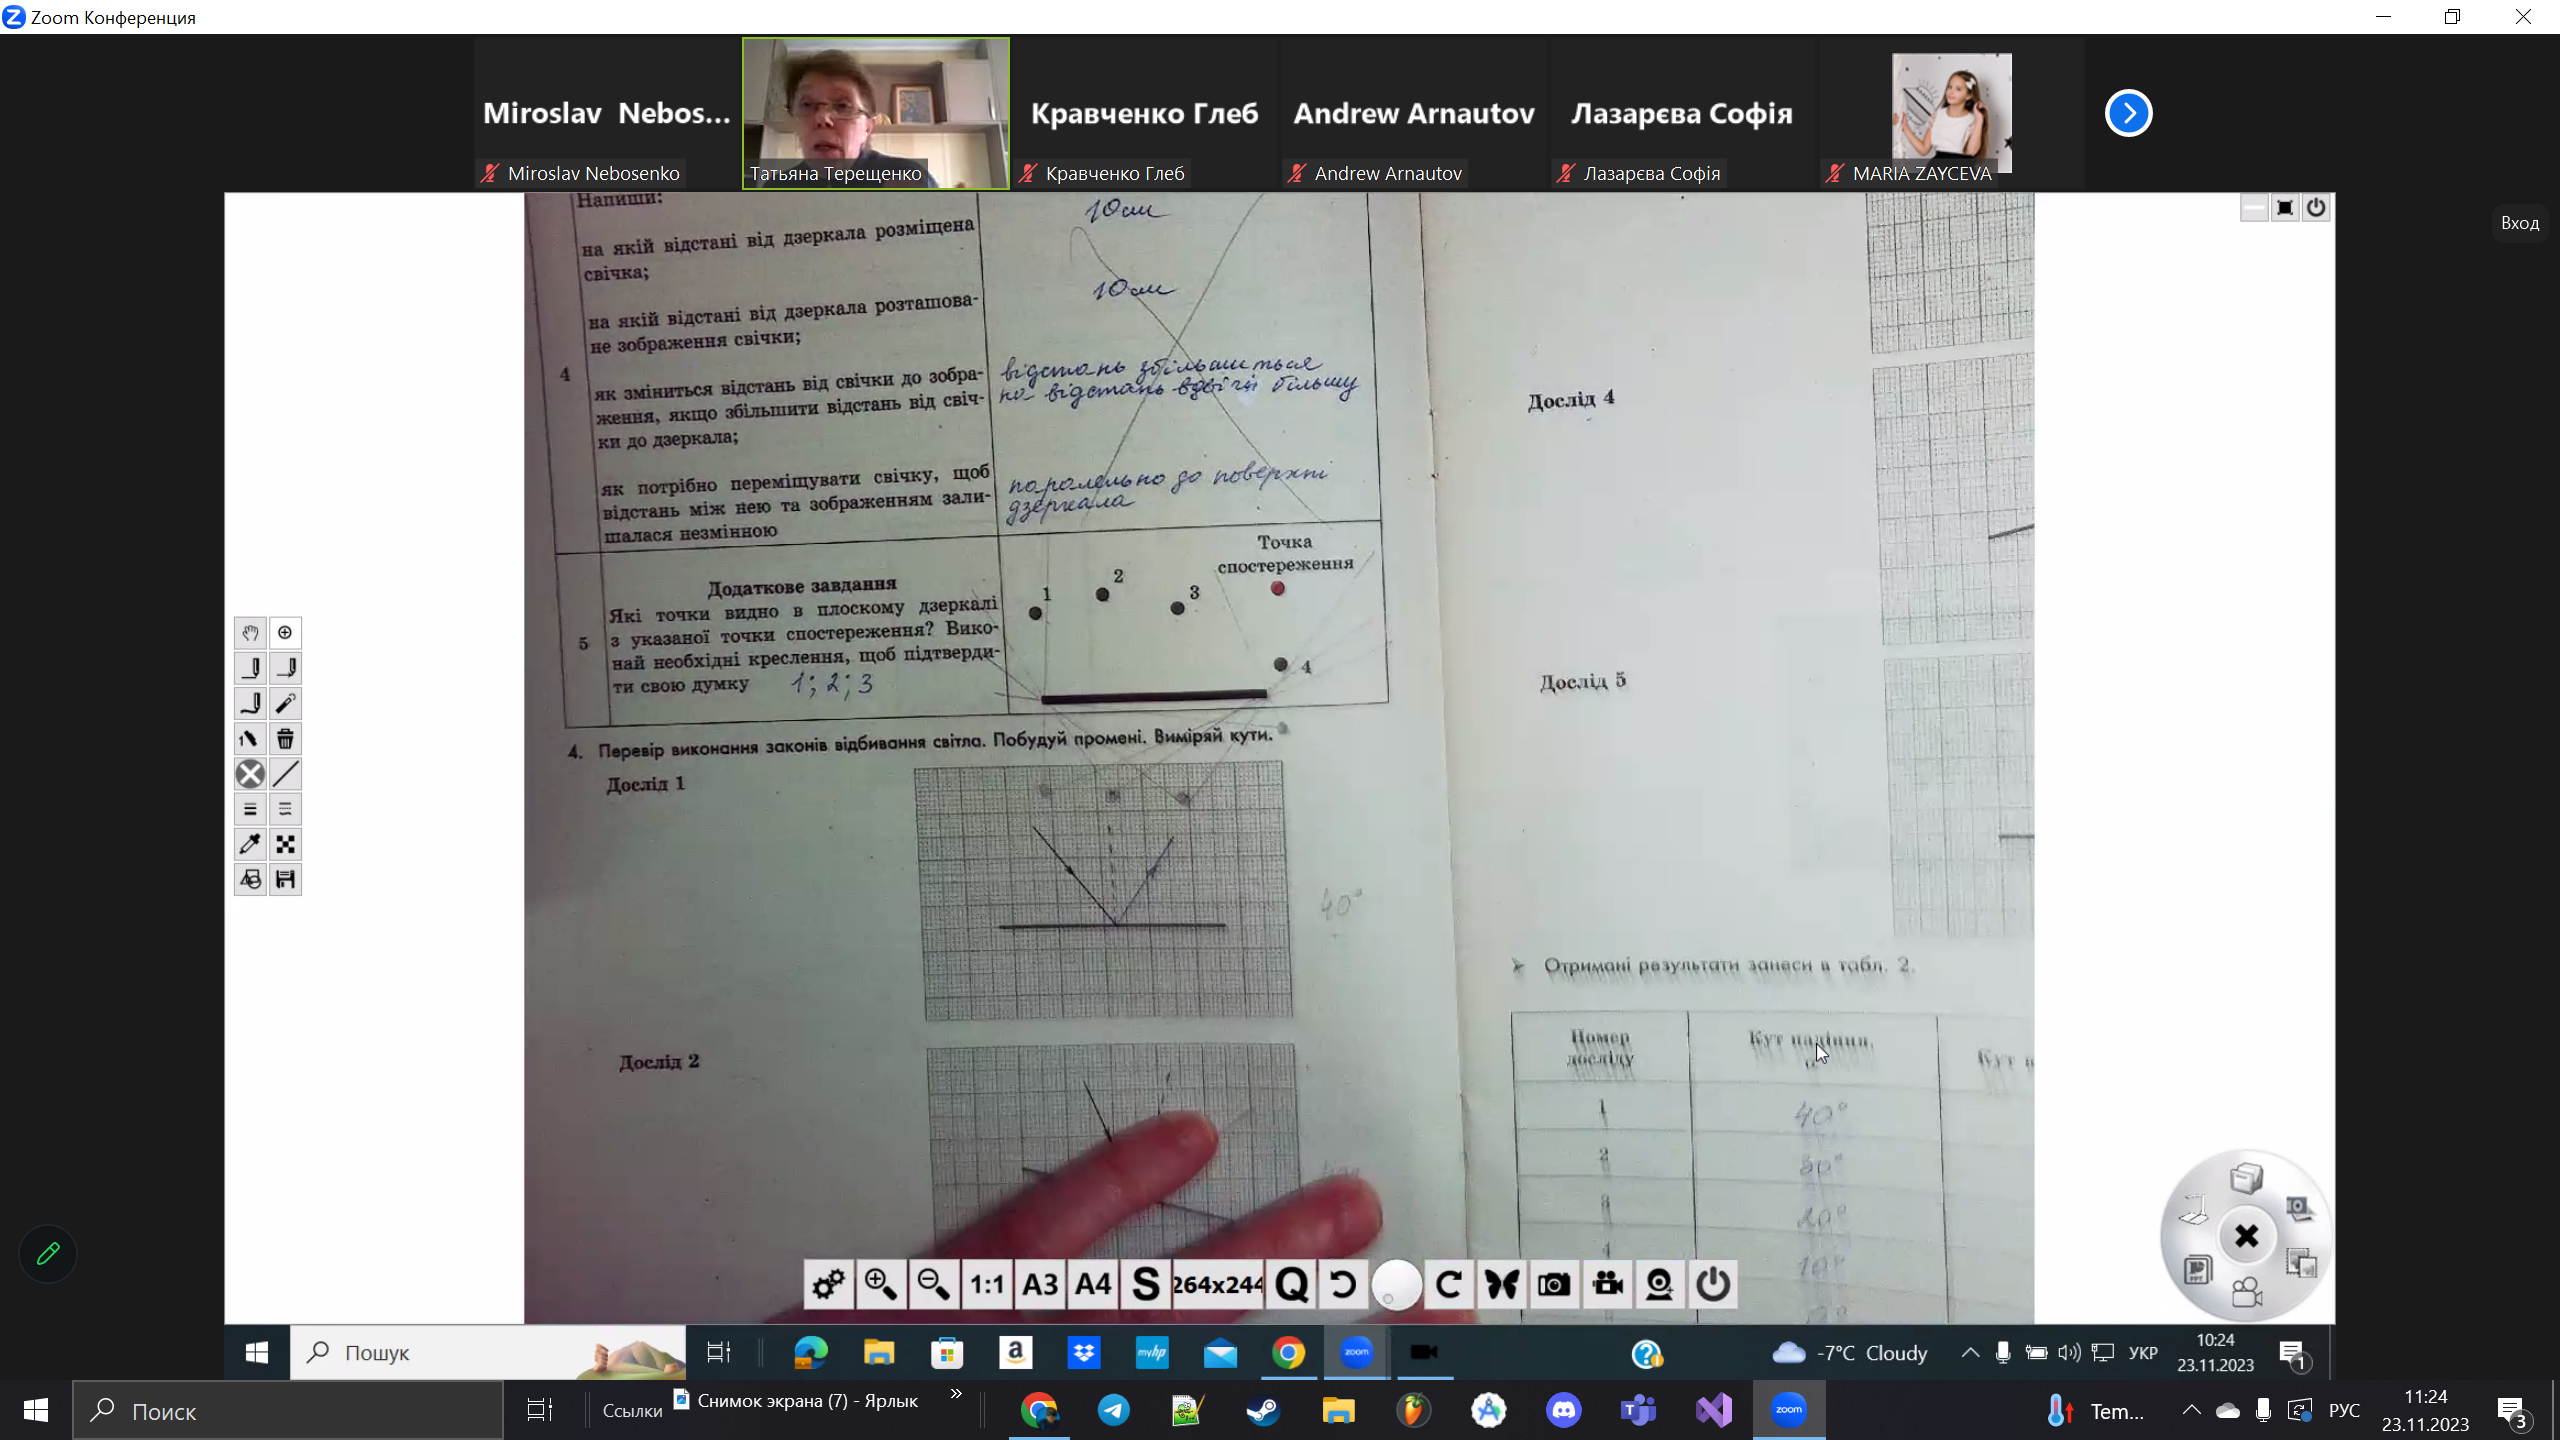 Zoom Конференция
Miroslav Nebos...
Кравченко Глеб
Andrew Arnautov
Лазарєва Софія
Miroslav Nebosenko
Татьяна Терещенко
Кравченко Глеб
Andrew Arnautov
Лазарєва Софія
MARIA ZAYCEVA
Вход
Напиши:
на якій відстані від дзеркала розміщена
свічка;
10см
на якій відстані від дзеркала розташова-
не зображення свічки;
10см
4
як зміниться відстань від свічки до зобра-
ження, якщо збільшити відстань від свіч-
ки до дзеркала;
відстань збільшиться
на відстань вдвічі більшу
як потрібно переміщувати свічку, щоб
відстань між нею та зображенням зали-
шалася незмінною
паралельно до поверхні
дзеркала
5
Додаткове завдання
Які точки видно в плоскому дзеркалі
з указаної точки спостереження? Вико-
най необхідні креслення, щоб підтверди-
ти свою думку 1; 2; 3
1
2
3
Точка
спостереження
4
4. Перевір виконання законів відбивання світла. Побудуй промені. Виміряй кути.
Дослід 1
40°
Дослід 2
Дослід 4
Дослід 5
➤ Отримані результати занеси в табл. 2.
Номер
досліду
Кут падіння,
Кут
1
40°
2
30°
3
20°
4
10°
1:1
A3
A4
S
264x244
Q
C
PPT
Пошук
a
myhp
zoom
-7°C Cloudy
УКР
10:24
23.11.2023
1
Поиск
Ссылки
Снимок экрана (7) - Ярлык
»
zoom
Tem...
РУС
11:24
23.11.2023
3